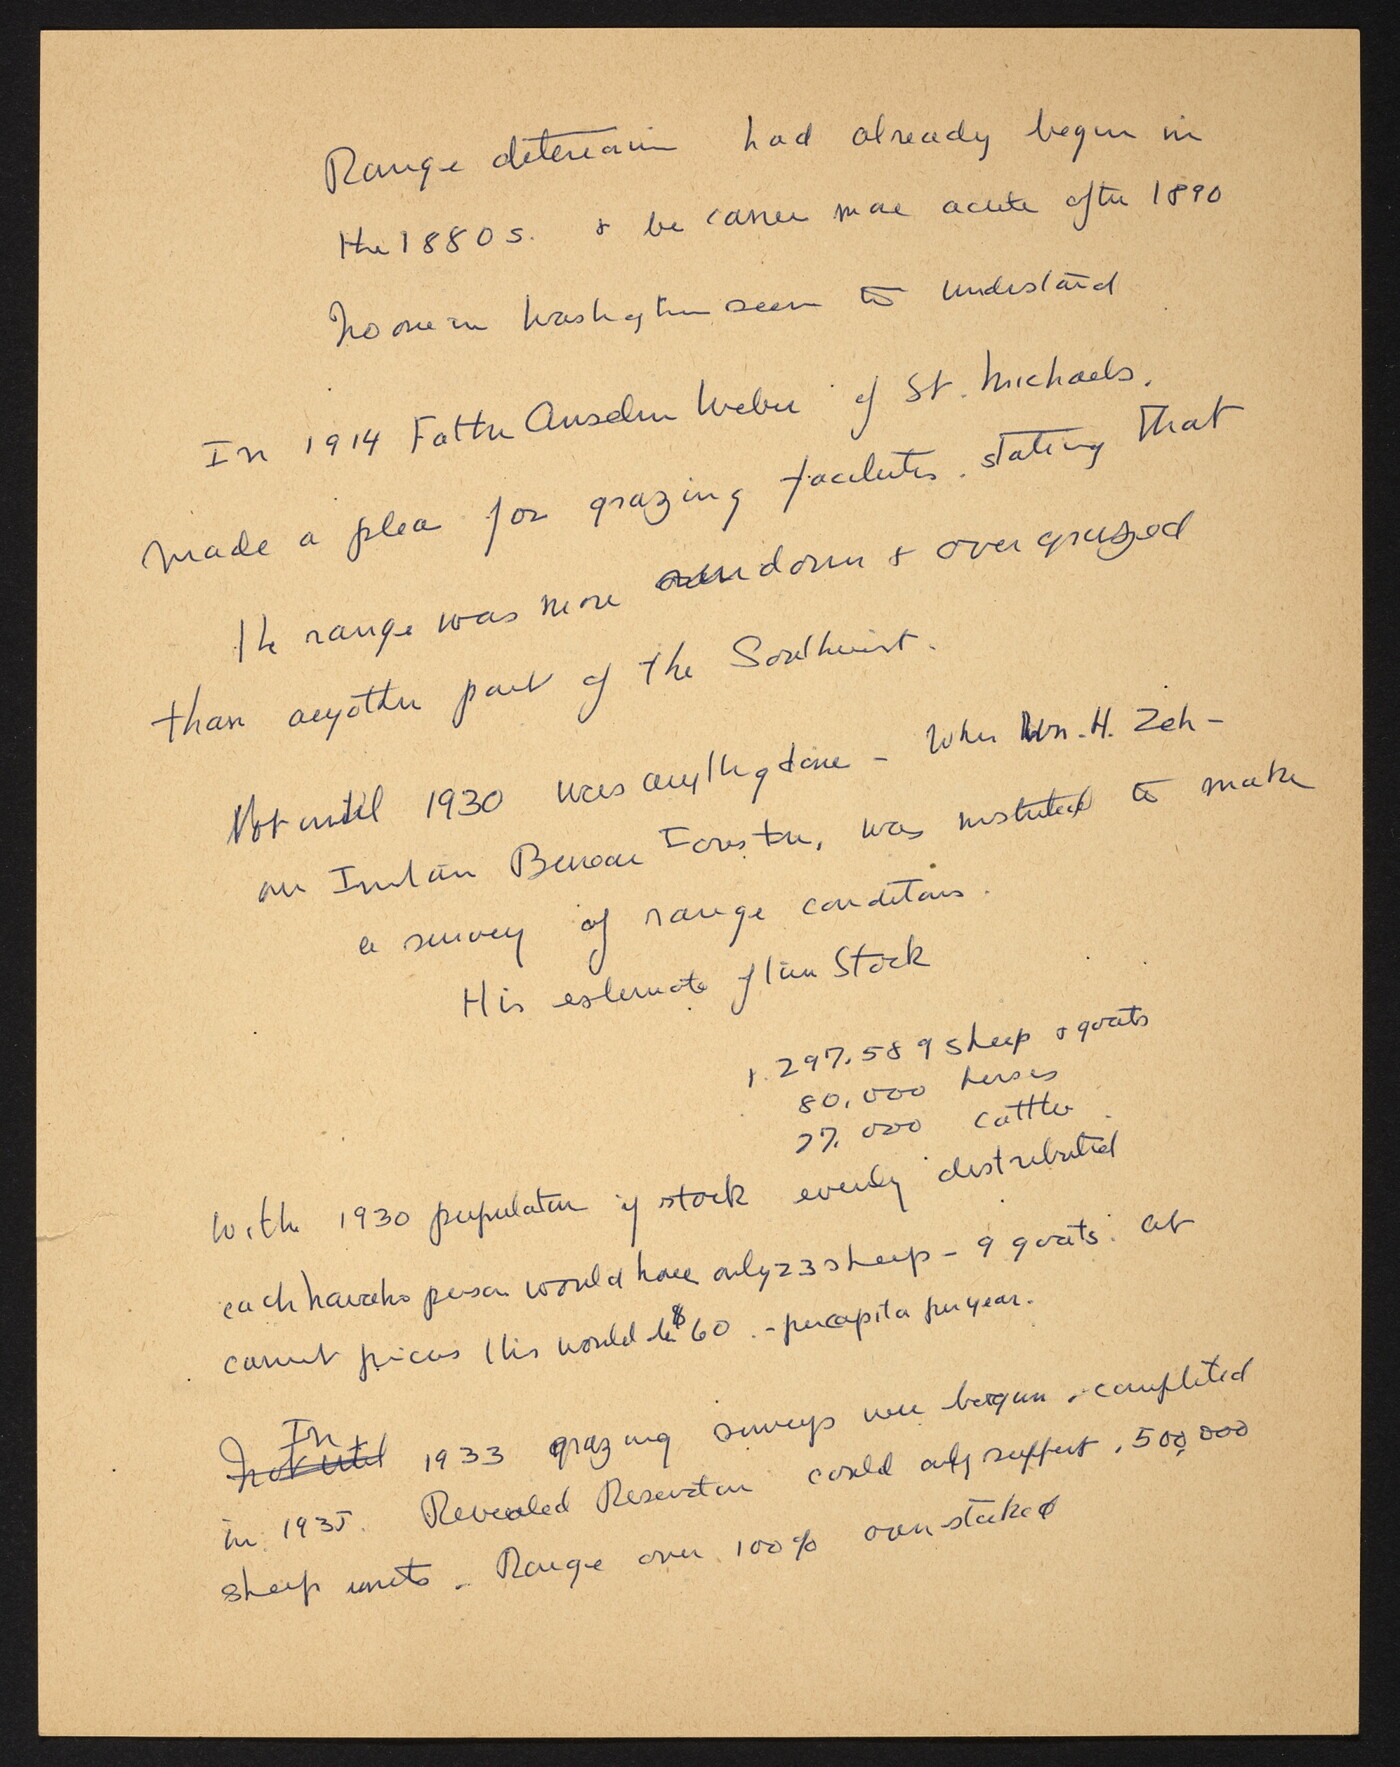 Range deterioration had already begun in
the 1880s. & became more acute after 1890
No one in Washington seem to understand
In 1914 Father Anselm Weber of St. Michaels.
made a plea for grazing facilities. stating that
the range was more run down & over grazed
than anyother part of the Southwest.
Not until 1930 was anything done - When Wm. H. Zeh -
an Indian Bureau Forester, was instructed to make
a survey of range conditions.
His estimate of live Stock
1.297.589 sheep & goats
80,000 horses
27,000 cattle
With 1930 population if stock evenly distributed
each Navaho person would have only 23 sheep - 9 goats. at
current prices this would be $60. - per capita per year.
In
Not until 1933 grazing surveys were begun & completed
in 1935. Revealed Reservation could only support .500,000
sheep units - Range over 100% over stocked